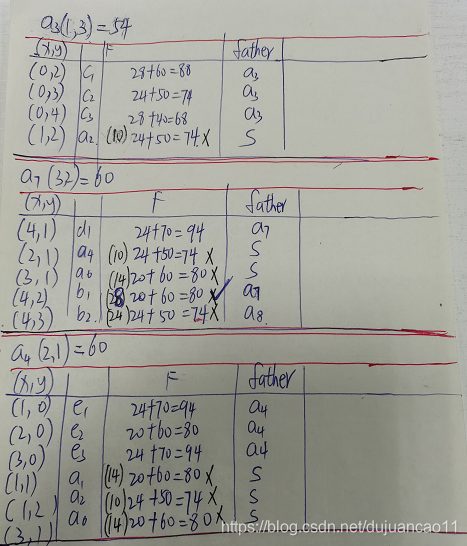 a3(1,3)=54
(x,y) F father
(0,2) c1 28+60=88 a3
(0,3) c2 24+50=74 a3
(0,4) c3 28+40=68 a3
(1,2) a2 (10) 24+50=74 x S
a7(3,2)=60
(x,y) F father
(4,1) d1 24+70=94 a7
(2,1) a4 (10) 24+50=74 x S
(3,1) a6 (14) 20+60=80 x S
(4,2) b1 20+60=80 x ✓ a7
(4,3) b2 (24) 24+50=74 x a8
a4(2,1)=60
(x,y) F father
(1,0) e1 24+70=94 a4
(2,0) e2 20+60=80 a4
(3,0) e3 24+70=94 a4
(1,1) a1 (14) 20+60=80 x S
(1,2) a2 (10) 24+50=74 x S
(3,1) a6 (14) 20+60=80 x S
https://blog.csdn.net/dujuancao11